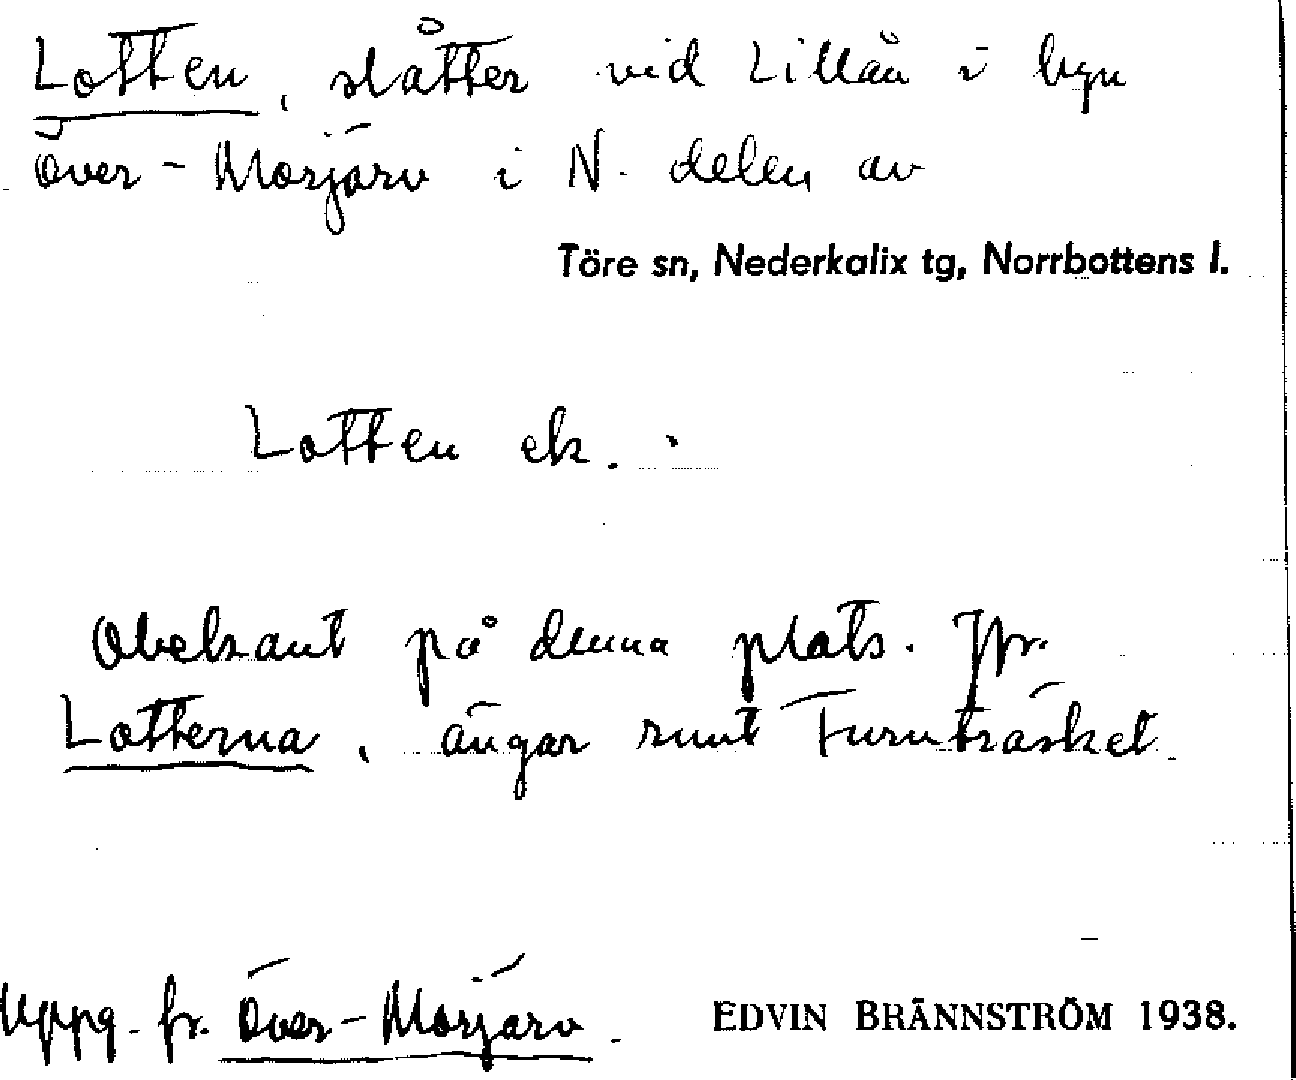 Lotten, slåtter vid Lillån i byn
Över-Morjärv i N. delen av
Töre sn, Nederkalix tg, Norrbottens l.
Lotten ek.
Obekant på denna plats. Jfr.
Lotterna, ängar runt Furuträsket.
Uppg. fr. Över-Morjärv.
EDVIN BRÄNNSTRÖM 1938.